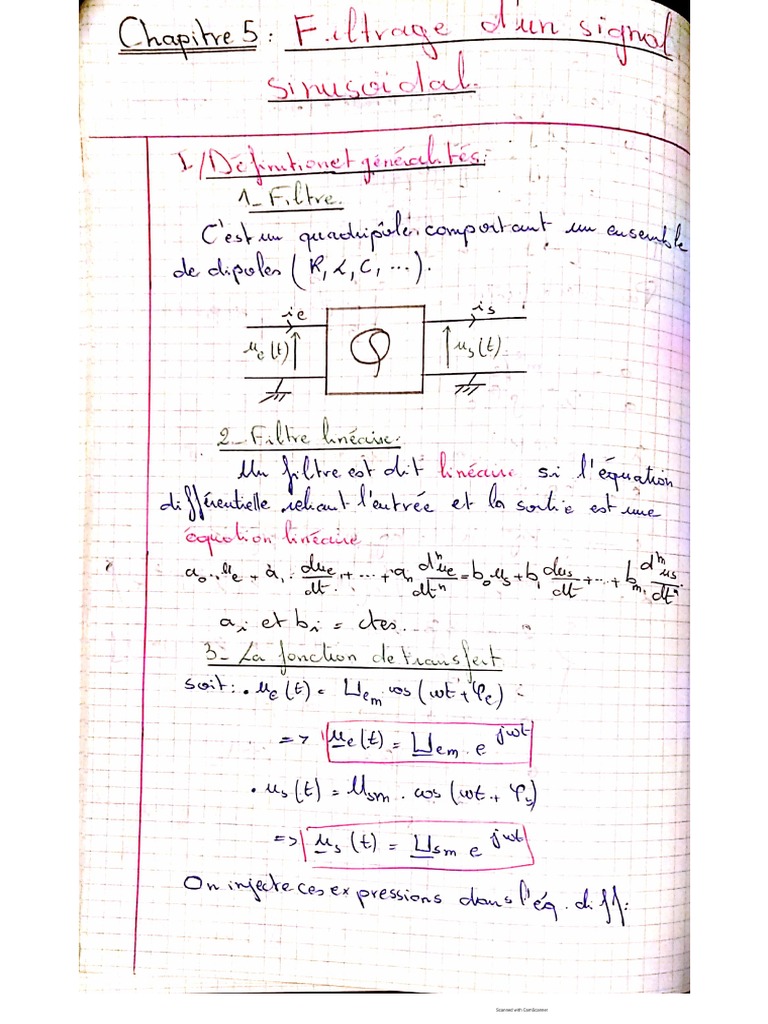 Chapitre 5 : Filtrage d'un signal
sinusoïdal.
I/ Définition et généralités:
1_ Filtre.
C'est un quadripôle comportant un ensemble
de dipoles (R, L, C, ...).
ie is
ue(t) Q us(t)
2_ Filtre linéaire.
Un filtre est dit linéaire si l'équation
différentielle reliant l'entrée et la sortie est une
équation linéaire
a₀.ue + a₁.due/dt + ... + aₙ dⁿue/dtⁿ = b₀us + b₁ dus/dt + ... + bₘ dᵐus/dtⁿ.
ai et bi = ctes.
3_ La fonction de transfert
soit : • ue(t) = Uem cos(ωt + φe) :
=> ue(t) = Uem . e^jωt
• us(t) = Usm . cos(ωt + φs)
=> us(t) = Usm e^jωt
On injecte ces expressions dans l'éq. diff:
Scanned with CamScanner